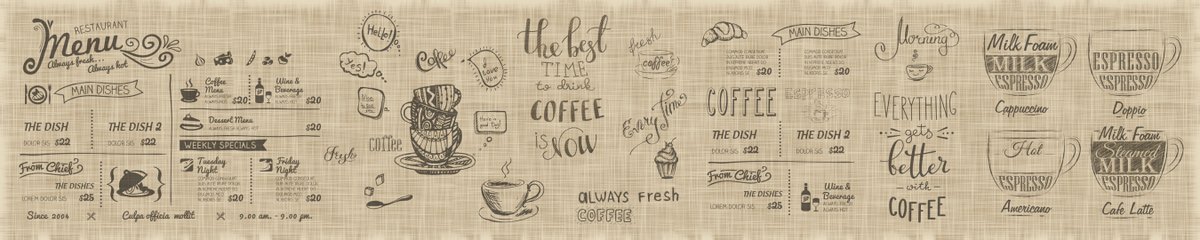 RESTAURANT
Menu
Always fresh...
Always hot
MAIN DISHES
THE DISH
DOLOR SIS $22
THE DISH 2
DOLOR SIS $22
From Chief
THE DISHES
LOREM DOLOR SIS $25
Since 2004
Culpa officia mollit
9.00 am. - 9.00 pm.
Coffee
Menu
$20
Wine &
Beverage
$20
Dessert Menu
$20
WEEKLY SPECIALS
Tuesday
Night
$20
Friday
Night
$20
Hello!
Yes!
Coffee
I
Love
You
coffee
Fresh
the best
TIME
to drink
COFFEE
is NOW
fresh
coffee
Every Time
ALWAYS FRESH
COFFEE
MAIN DISHES
$20
$20
COFFEE
ESPRESSO
THE DISH
DOLOR SIS $22
THE DISH 2
DOLOR SIS $22
From Chief
THE DISHES
LOREM DOLOR SIS $25
Wine &
Beverage
ALWAYS FRESH
ALWAYS HOT
Morning
EVERYTHING
gets
better
- with -
COFFEE
Milk Foam
MILK
ESPRESSO
Cappuccino
ESPRESSO
ESPRESSO
Doppio
Hot
ESPRESSO
Americano
Milk Foam
Steamed
MILK
ESPRESSO
Cafe Latte